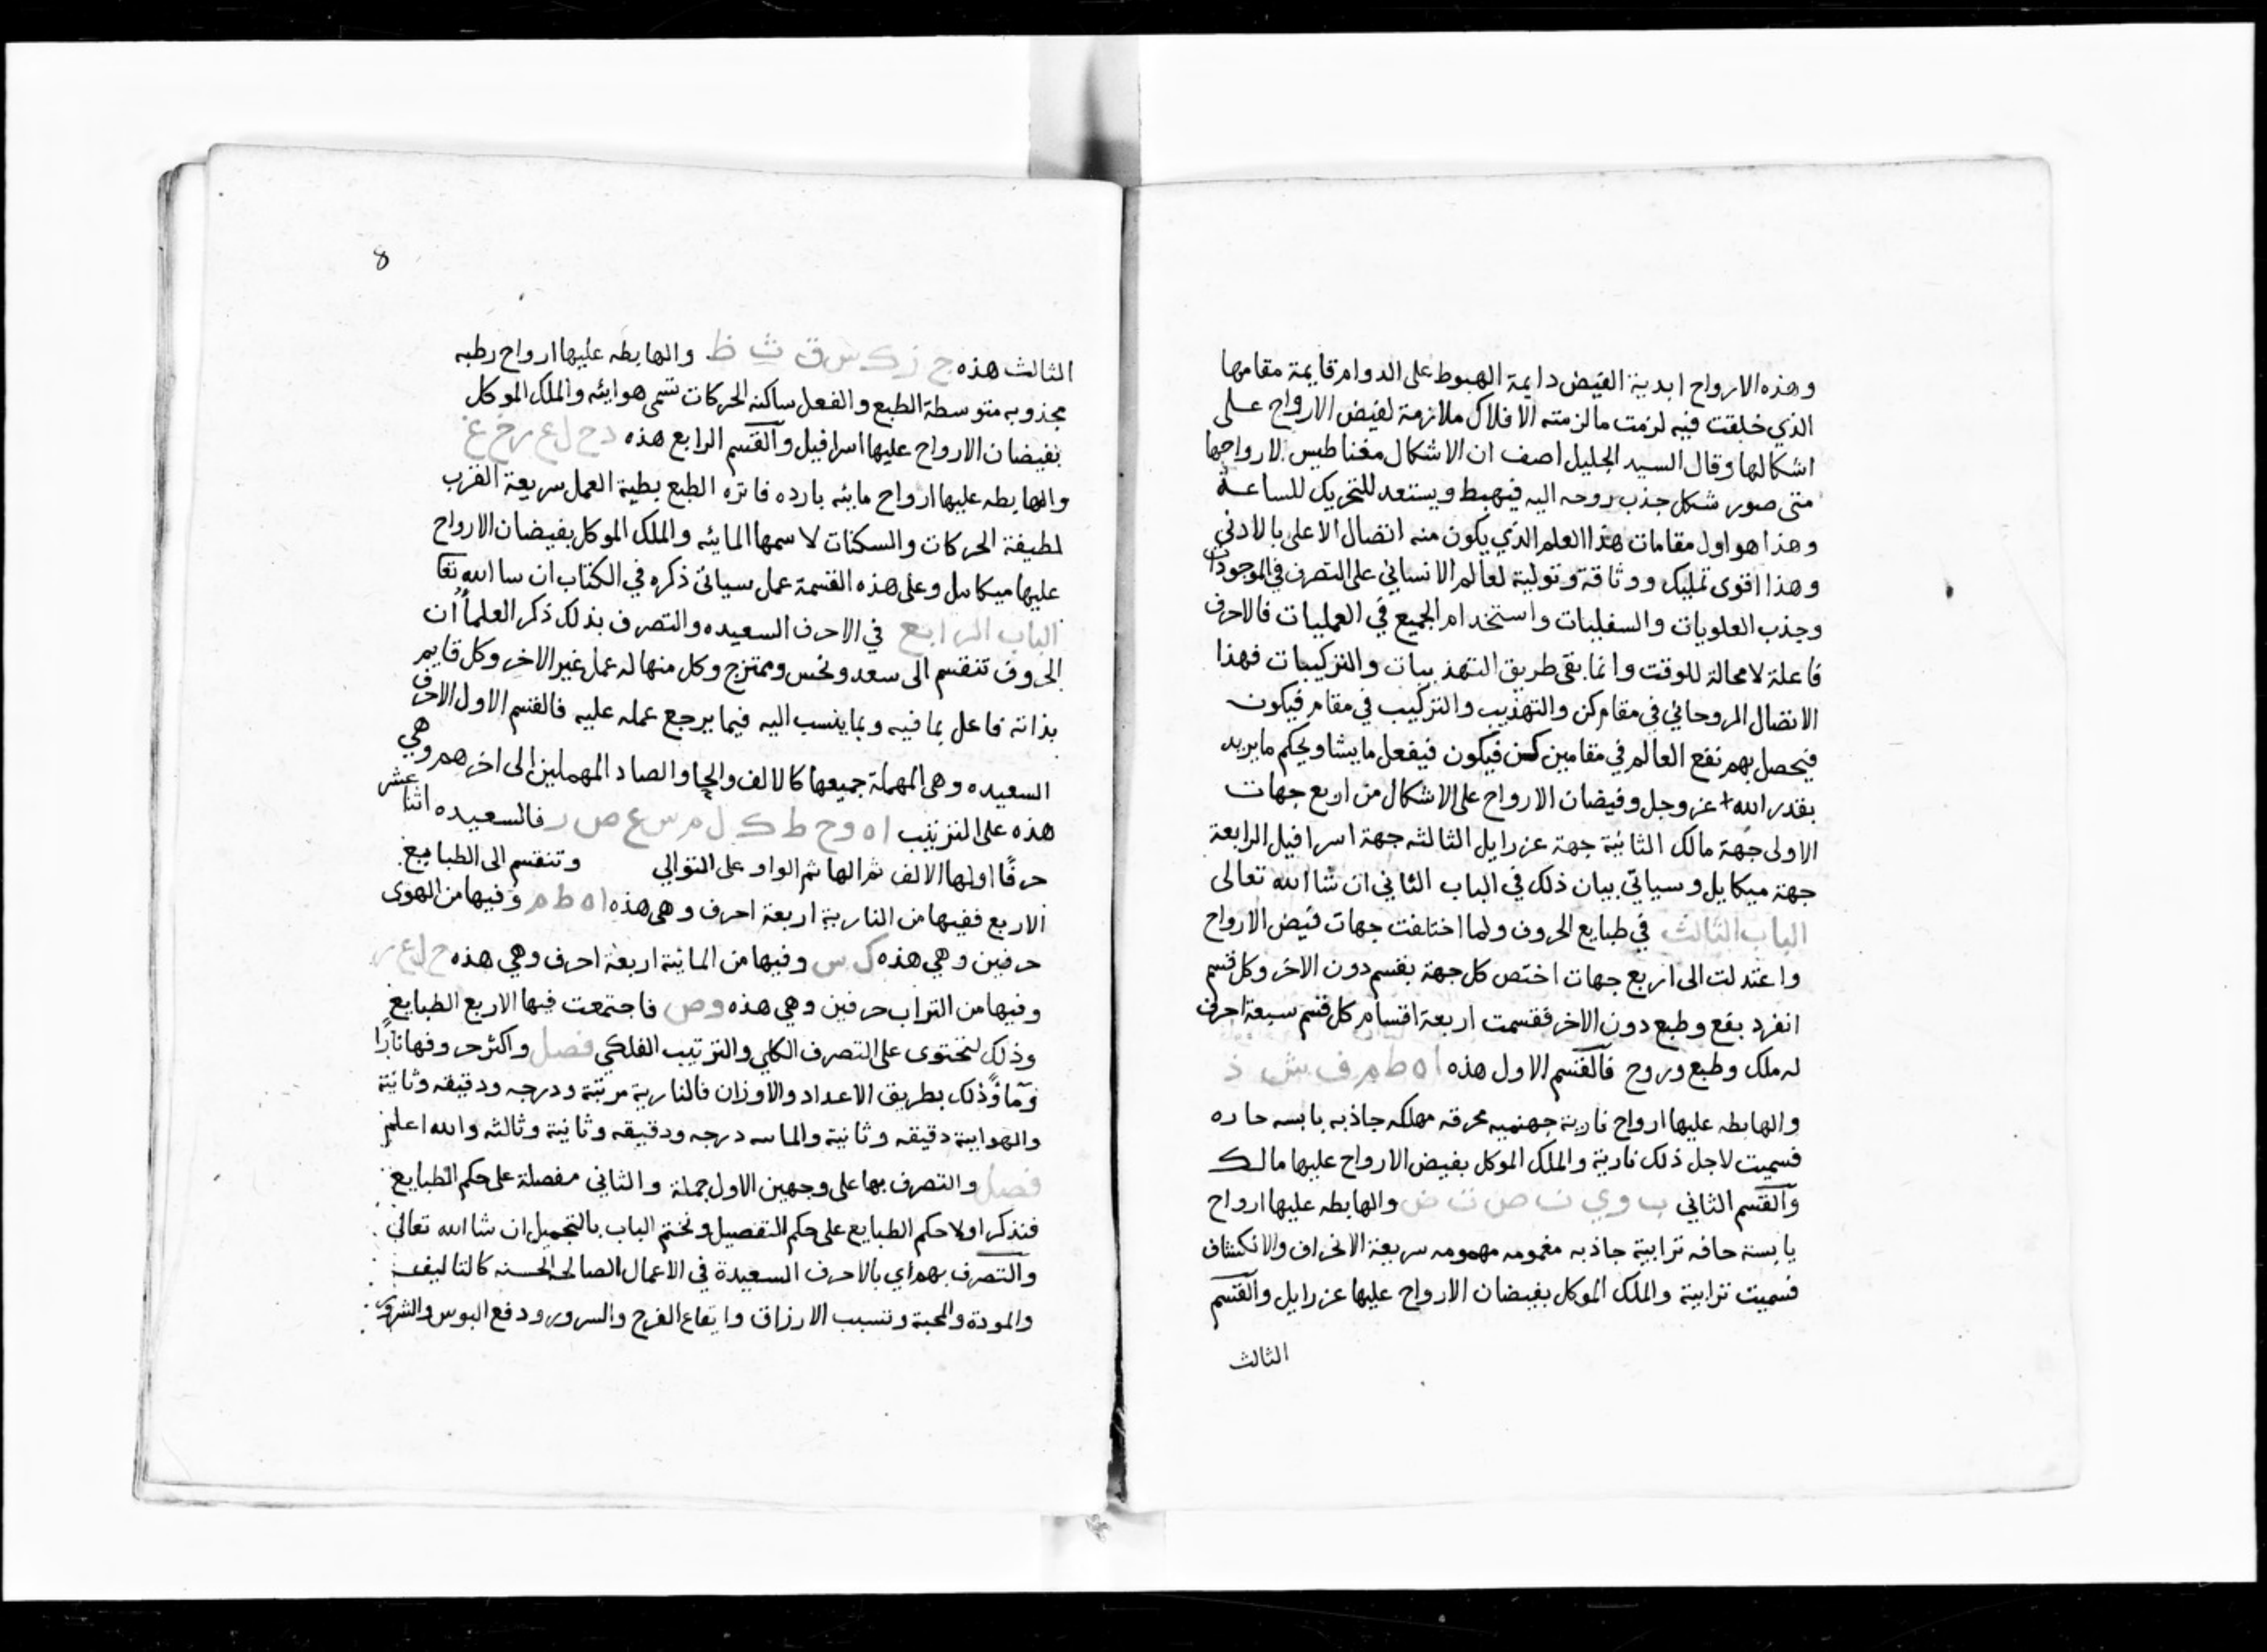 وهذه الارواح ابدية الفيض دايمة الهبوط على الدوام قايمة مقامها
الذي خلقت فيه لزمت مالزمته الافلاك ملازمة لفيض الارواح على
اشكالها وقال السيد الجليل اصف ان الاشكال مغناطيس لارواحها
متى صور شكل جذب روحه اليه فيهبط ويستعد للتحريك للساعة
وهذا هو اول مقامات هذا العلم الذي يكون منه اتصال الاعلى بالادنى
وهذا اقوى تمليك ووثاقة وتولية لعالم الانساني على التصرف في الموجودات
وجذب العلويات والسفليات واستخدام الجميع في العمليات فالاحرف
فاعلة لامحالة للوقت وانما بقى طريق التهذيبات والتركيبات فهذا
الاتصال الروحاني في مقام كن والتهذيب والتركيب في مقام فيكون
فيحصل بهم نفع العالم في مقامين كن فيكون فيفعل مايشا ويحكم مايريد
بقدر الله عز وجل وفيضان الارواح على الاشكال من اربع جهات
الاولى جهة مالك الثانية جهة عزرايل الثالثه جهة اسرافيل الرابعة
جهة ميكايل وسياتي بيان ذلك في الباب الثاني ان شا الله تعالى
الباب الثالث في طبايع الحروف ولما اختلفت جهات فيض الارواح
واعتدلت الى اربع جهات اختص كل جهة بقسم دون الاخر وكل قسم
انفرد بقع وطبع دون الاخر فقسمت اربعة اقسام كل قسم سبعة احرف
له ملك وطبع وروح فالقسم الاول هذه ا ه ط م ف ش ذ
والهابطه عليها ارواح نارية جهنميه محرقه مهلكه جاذبه يابسه حاره
فسميت لاجل ذلك نارية والملك الموكل بفيض الارواح عليها مالك
والقسم الثاني ب و ي ن ص ت ض والهابطه عليها ارواح
يابسة حافه ترابية جاذبه مغمومه مهمومه سريعة الانحراف والانكشاف
فسميت ترابية والملك الموكل بفيضان الارواح عليها عزرايل والقسم
الثالث
8
الثالث هذه ج ز ك س ق ث ظ والهابطه عليها ارواح رطبه
مجذوبه متوسطة الطبع والفعل ساكنه الحركات تسمى هوايئه والملك الموكل
بفيضان الارواح عليها اسرافيل والقسم الرابع هذه د ح ل ع ر خ غ
والهابطه عليها ارواح مايئه بارده فاتره الطبع بطية العمل سريعة القرب
لطيفة الحركات والسكنات لاسمها المايئه والملك الموكل بفيضان الارواح
عليها ميكاييل وعلى هذه القسمة عمل سياتي ذكره في الكتاب ان سا الله تعا
الباب الرابع في الاحرف السعيده والتصرف بذلك ذكر العلماء ان
الحروف تنقسم الى سعد ونحس وممتزج وكل منها له عمل غير الاخر وكل قايم
بذاته فاعل بما فيه وبما ينسب اليه فيما يرجع عمله عليه فالقسم الاول الاحرف
السعيده وهى المهملة جميعها كالالف والحا والصاد المهملين الى اخرهم وهي
هذه على الترتيب ا ه و ح ط ك ل م س ع ص ر فالسعيده اثنا عشر
حرفًا اولها الالف ثم الها ثم الواو على التوالي وتنقسم الى الطبايع
الاربع ففيها من النارية اربعة احرف وهى هذه ا ه ط م وفيها من الهوى
حرفين وهي هذه ك س وفيها من المائية اربعة احرف وهي هذه ح ل ع ر
وفيها من التراب حرفين وهي هذه و ص فاجتمعت فيها الاربع الطبايع
وذلك لتحتوى على التصرف الكلي والترتيب الفلكي فصل واكثر حروفها نارًا
ومآءً وذلك بطريق الاعداد والاوزان فالنارية مرتبة ودرجه ودقيقه وثانية
والهوايية دقيقه وثانية والماييه درجه ودقيقه وثانية وثالثه والله اعلم
فصل والتصرف بها على وجهين الاول جملة والثاني مفصلة على حكم الطبايع
فنذكر اولا حكم الطبايع على حكم التفصيل ونختم الباب بالتجميل ان شا الله تعالى
والتصرف بهم اي بالاحرف السعيدة في الاعمال الصالحه الحسنه كالتاليف
والمودة والمحبة وتسبب الارزاق وايقاع الفرح والسرور ودفع البوس والشرور